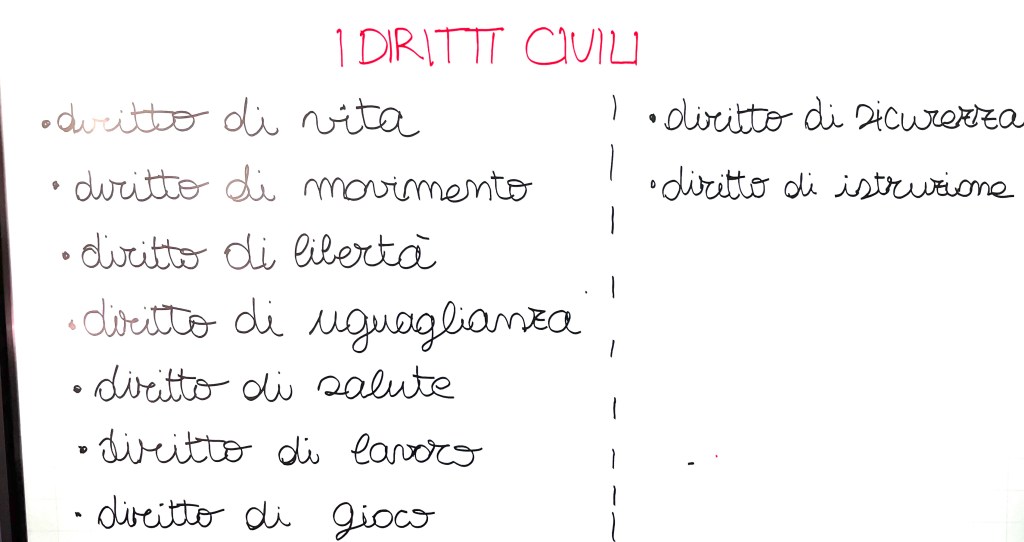 I DIRITTI CIVILI
• diritto di vita
• diritto di movimento
• diritto di libertà
• diritto di uguaglianza
• diritto di salute
• diritto di lavoro
• diritto di gioco
• diritto di sicurezza
• diritto di istruzione